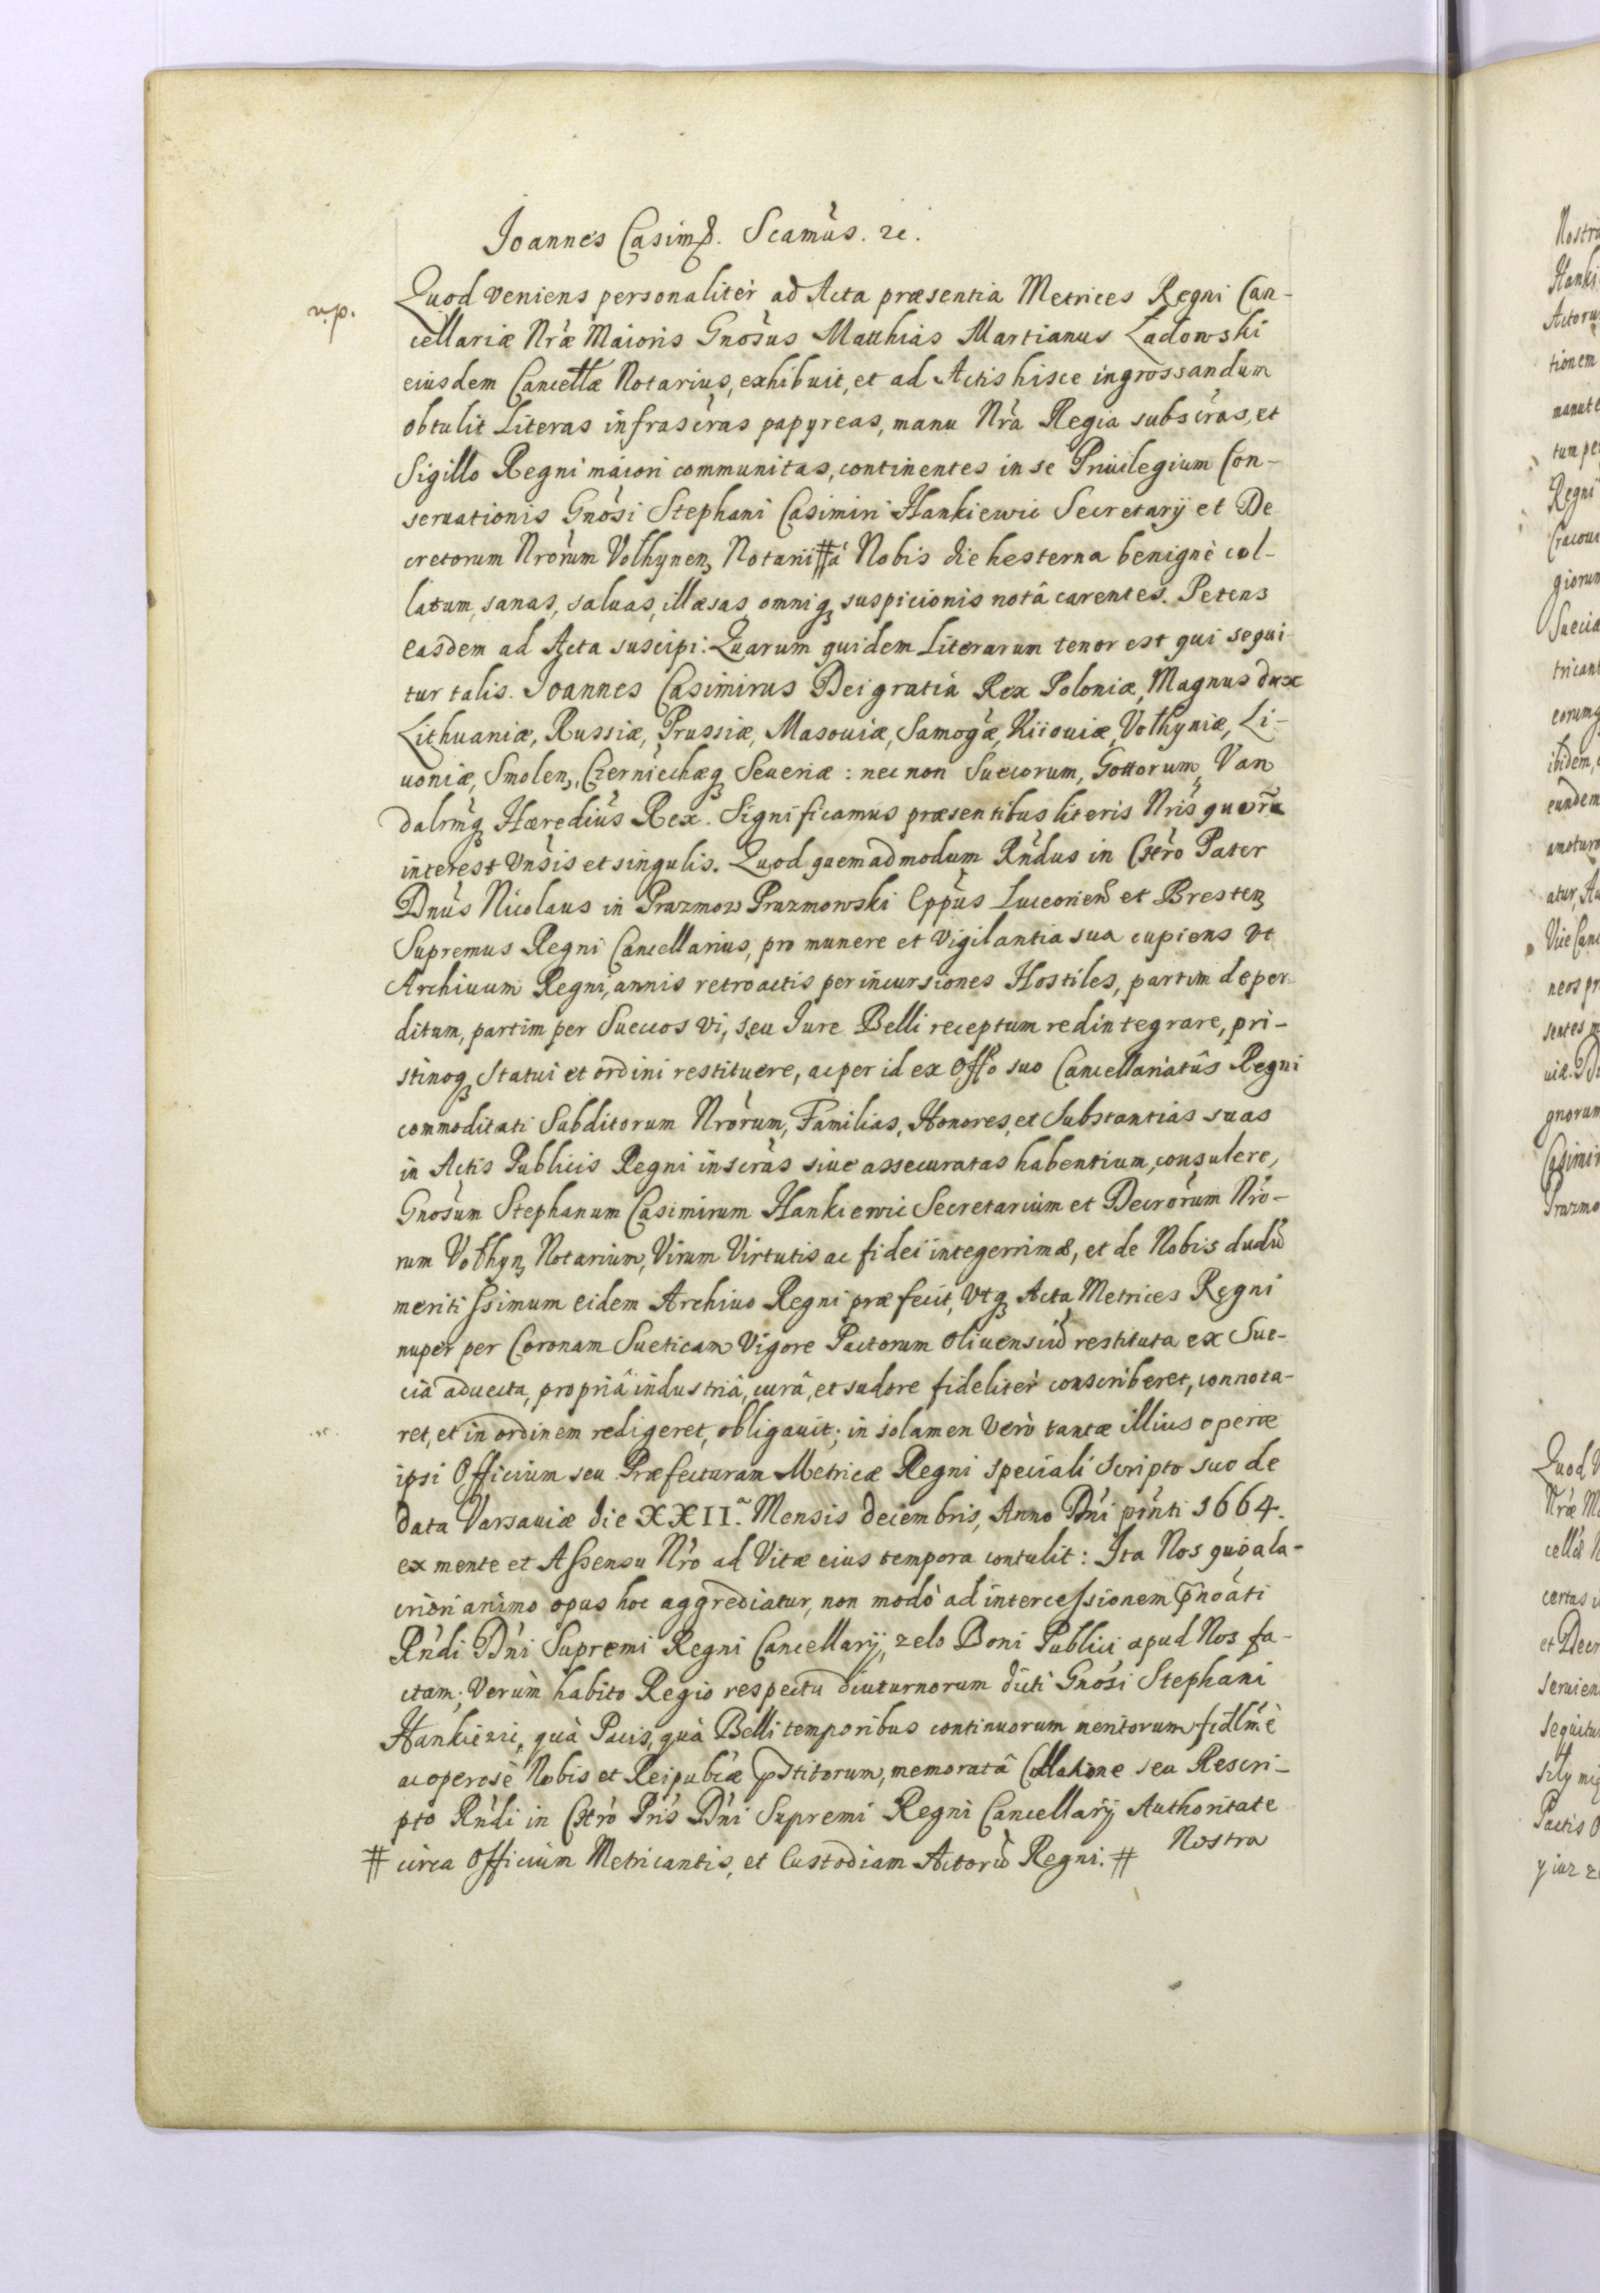 Joannes Casimꝰ. Scamús. ꝛc.
v.p.
Quod veniens personalitèr ad Acta præsentia Metrices Regni Can-
cellariæ Nræ Maioris Gnosus Matthias Martianus Ladowski
eiusdem Cancellæ Notarius, exhibuit, et ad Actis hisce ingrossandum
obtulit Literas infrascras papyreas, manu Nrà Regia subscras, et
Sigillo Regni maiori communitas, continentes in se Priuilegium Con-
seruationis Gnosi Stephani Casimiri Hankiewic Secretarÿ et De
cretorum Nrorum Volhynenꝫ Notarii # á Nobis die hesterna benignè col-
latum, sanas, saluas, illæsas, omniqꝫ suspicionis notâ carentes. Petens
easdem ad Acta suscipi. Quarum quidem Literarum tenor est qui sequi-
tur talis. Joannes Casimirus Dei gratia Rex Poloniæ, Magnus dux
Lithuaniæ, Russiæ, Prussiæ, Masouiæ, Samogæ, Kiiouiæ, Volhyniæ, Li-
uoniæ, Smolenꝫ, Czerniechæqꝫ Seueriæ: nec non Suecorum, Gottorum, Van
dalrmqꝫ Hæredius Rex. Significamus præsentibus literis Nris quorū
interest Vnsis et singulis. Quod quemadmodum Rndus in Chro Pater
Dnus Nicolaus in Prazmow Prazmowski Eppus Luceorien et Brestenꝫ
Supremus Regni Cancellarius, pro munere et vigilantia sua cupiens vt
Archiuum Regni, annis retroactis per incursiones Hostiles, partim deper
ditum, partim per Suecos vi, seu Jure Belli receptum redintegrare, pri-
stinoqꝫ statui et ordini restituere, ac per id ex Offo suo Cancellariatûs Regni
commoditati Subditorum Nrorum, Familias, Honores, et Substantias suas
in Actis Publicis Regni inscras siue assecuratas habentium, consulere,
Gnosum Stephanum Casimirum Hankiewic Secretarium et Decrorum Nro-
rum Volhynꝫ Notarium, Virum Virtutis ac fidei integerrimæ, et de Nobis dudū
meritissimum eidem Archiuo Regni præfecit, Vtqꝫ Acta Metrices Regni
nuper per Coronam Sueticam Vigore Pactorum Oliuensiū restituta ex Sue-
ciâ aduecta, propriâ industriâ, curâ, et sudore fidelitèr conscriberet, connota-
ret, et in ordinem redigeret, obligauit; in solamen Verò tantæ illius operæ
ipsi Officium seu Præfecturam Metricæ Regni speciali scripto suo de
data Varsauiæ die XXIIa. Mensis decembris, Anno Dni pnti 1664.
ex mente et Assensu Nro ad Vitæ eius tempora contulit: Ita Nos quo ala-
criori animo opus hoc aggrediatur, non modò ad intercessionem p̃noāti
Rndi Dni Supremi Regni Cancellarÿ, zelo Boni Publici apud Nos fa-
ctam, Verùm habito Regio respectu diuturnorum dicti Gnosi Stephani
Hankiewic, quà Pacis, quà Belli temporibus continuorum meritorum fidlmè
ac operosè Nobis et Reipubcæ p̃stitorum, memoratâ Collatione seu Rescri-
pto Rndi in Chro Pris Dni Supremi Regni Cancellarÿ Authoritate
Nostra
# circa Officium Metricantis, et Custodiam Actorū Regni. #